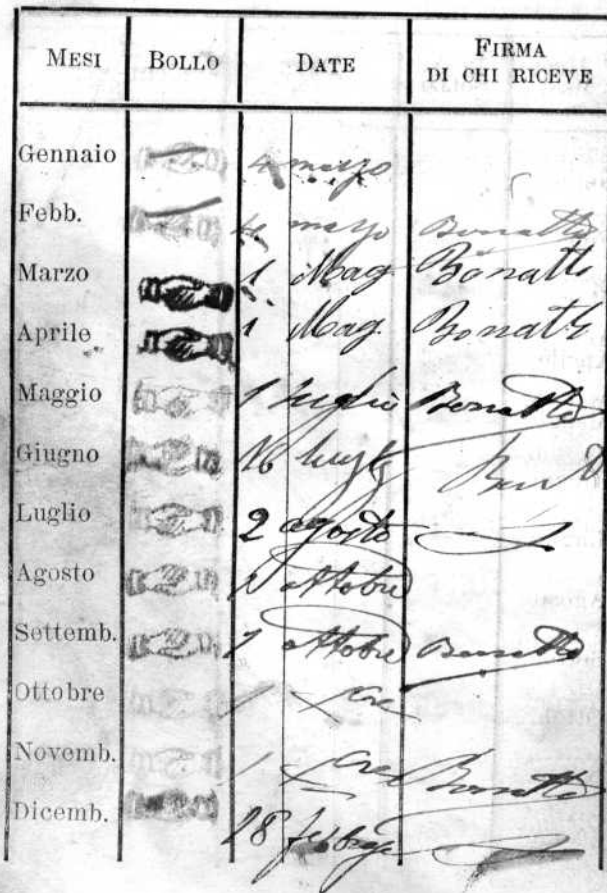 MESI BOLLO DATE FIRMA DI CHI RICEVE
Gennaio 4 marzo
Febb. 4 marzo Bonatto
Marzo 1 Mag. Bonatto
Aprile 1 Mag. Bonatto
Maggio 1 luglio Bonatto
Giugno 16 luglio
Luglio 2 agosto
Agosto 1 ottobre
Settemb. 1 ottobre Bonatto
Ottobre 1 Xcre
Novemb. 1 Xcre Bonatto
Dicemb. 28